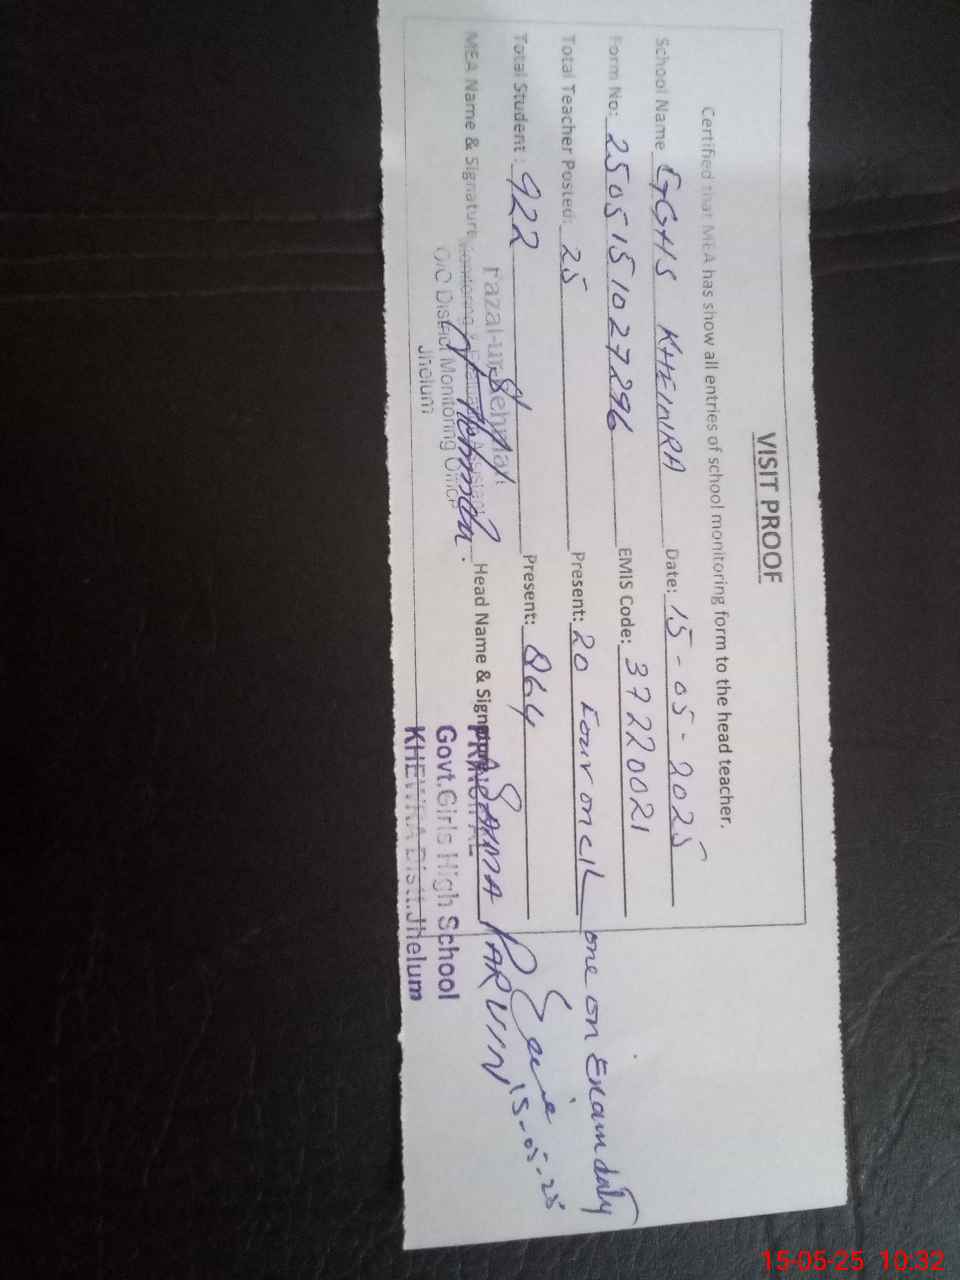 VISIT PROOF
Certified that MEA has show all entries of school monitoring form to the head teacher.
School Name GGHS KHEWRA Date: 15-05-2025
Form No: 2505151027296 EMIS Code: 37220021
Total Teacher Posted: 25 Present: 20 Four on C/L one on Exam duty
Total Student: 922 Present: 864
MEA Name & Signature Head Name & Signature SAIMA PARVIN
Fazal-ur-Rehman
Monitoring & Evaluation Assistant
O/O District Monitoring Officer
Jhelum
15-05-25
PRINCIPAL
Govt.Girls High School
KHEWRA Distt.Jhelum
15-05-25 10:32